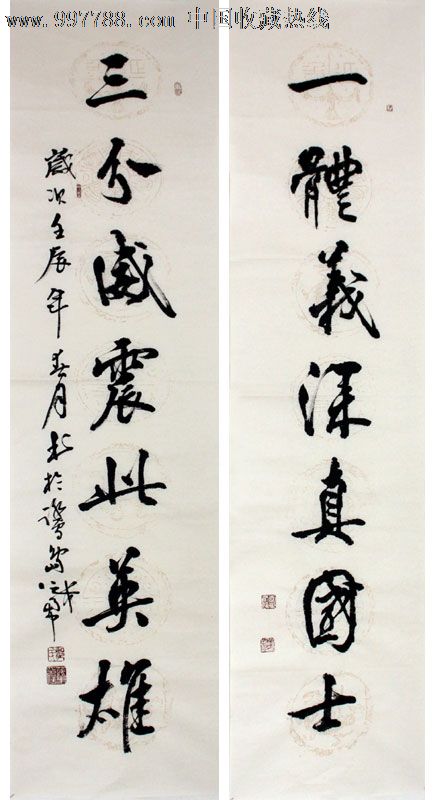 www.997788.com 中国收藏热线
一體義深真國士
三分威震此英雄
歲次壬辰年春月